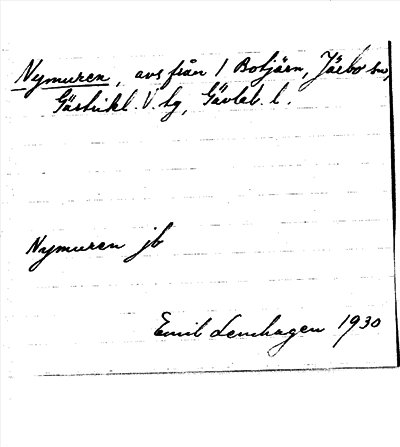 Nymuren, avs från 1 Botjärn, Järbo sn,
Gästrikl. V. tg, Gävleb. l.
Nymuren jb
Emil Lenhagen 1930